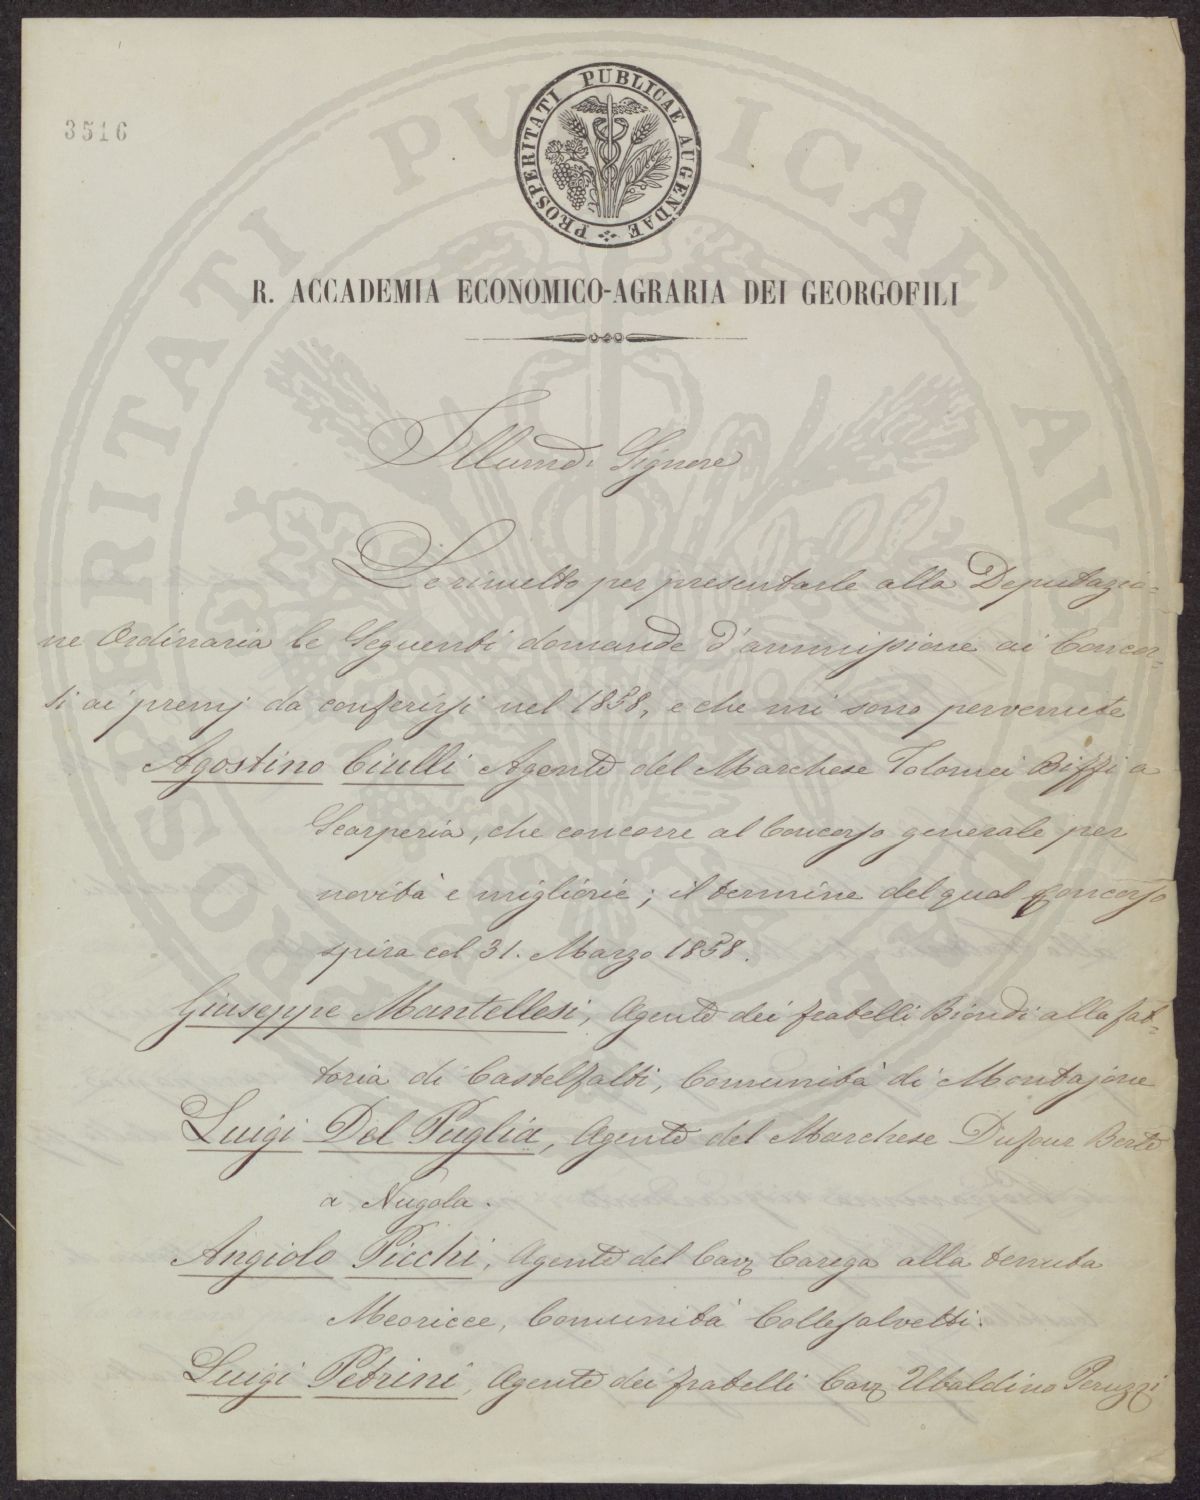 3516
PROSPERITATI PUBLICAE AUGENDAE
R. ACCADEMIA ECONOMICO-AGRARIA DEI GEORGOFILI
Illumo. Signore
Le rimetto per presentarle alla Deputazio-
ne Ordinaria le seguenti domande d'ammissione ai Concor-
si ai premj da conferirsi nel 1858, e che mi sono pervenute
Agostino Ciulli Agente del Marchese Tolomei Biffi a
Scarperia, che concorre al Concorso generale per
novità e migliorie; il termine del qual Concorso
spira col 31. Marzo 1858.
Giuseppe Mantellesi, Agente dei fratelli Biondi alla fat-
toria di Castelfalfi, Comunità di Montajone
Luigi Del Puglia, Agente del Marchese Dufour Berte
a Nugola.
Angiolo Picchi, Agente del Cav Carega alla tenuta
Mcoricce, Comunità Collesalvetti.
Luigi Petrini, Agente dei fratelli Cav Ubaldino Peruzzi